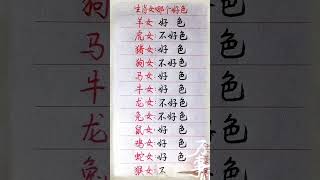 生肖女哪个好色
羊女:好 色
虎女:不好色
猪女:好 色
狗女:不好色
马女:好 色
牛女:好 色
龙女:不好色
兔女:不好色
鼠女:好 色
鸡女:好 色
蛇女:好 色
猴女:不
狗
马
牛
龙
兔
色
色
色
色